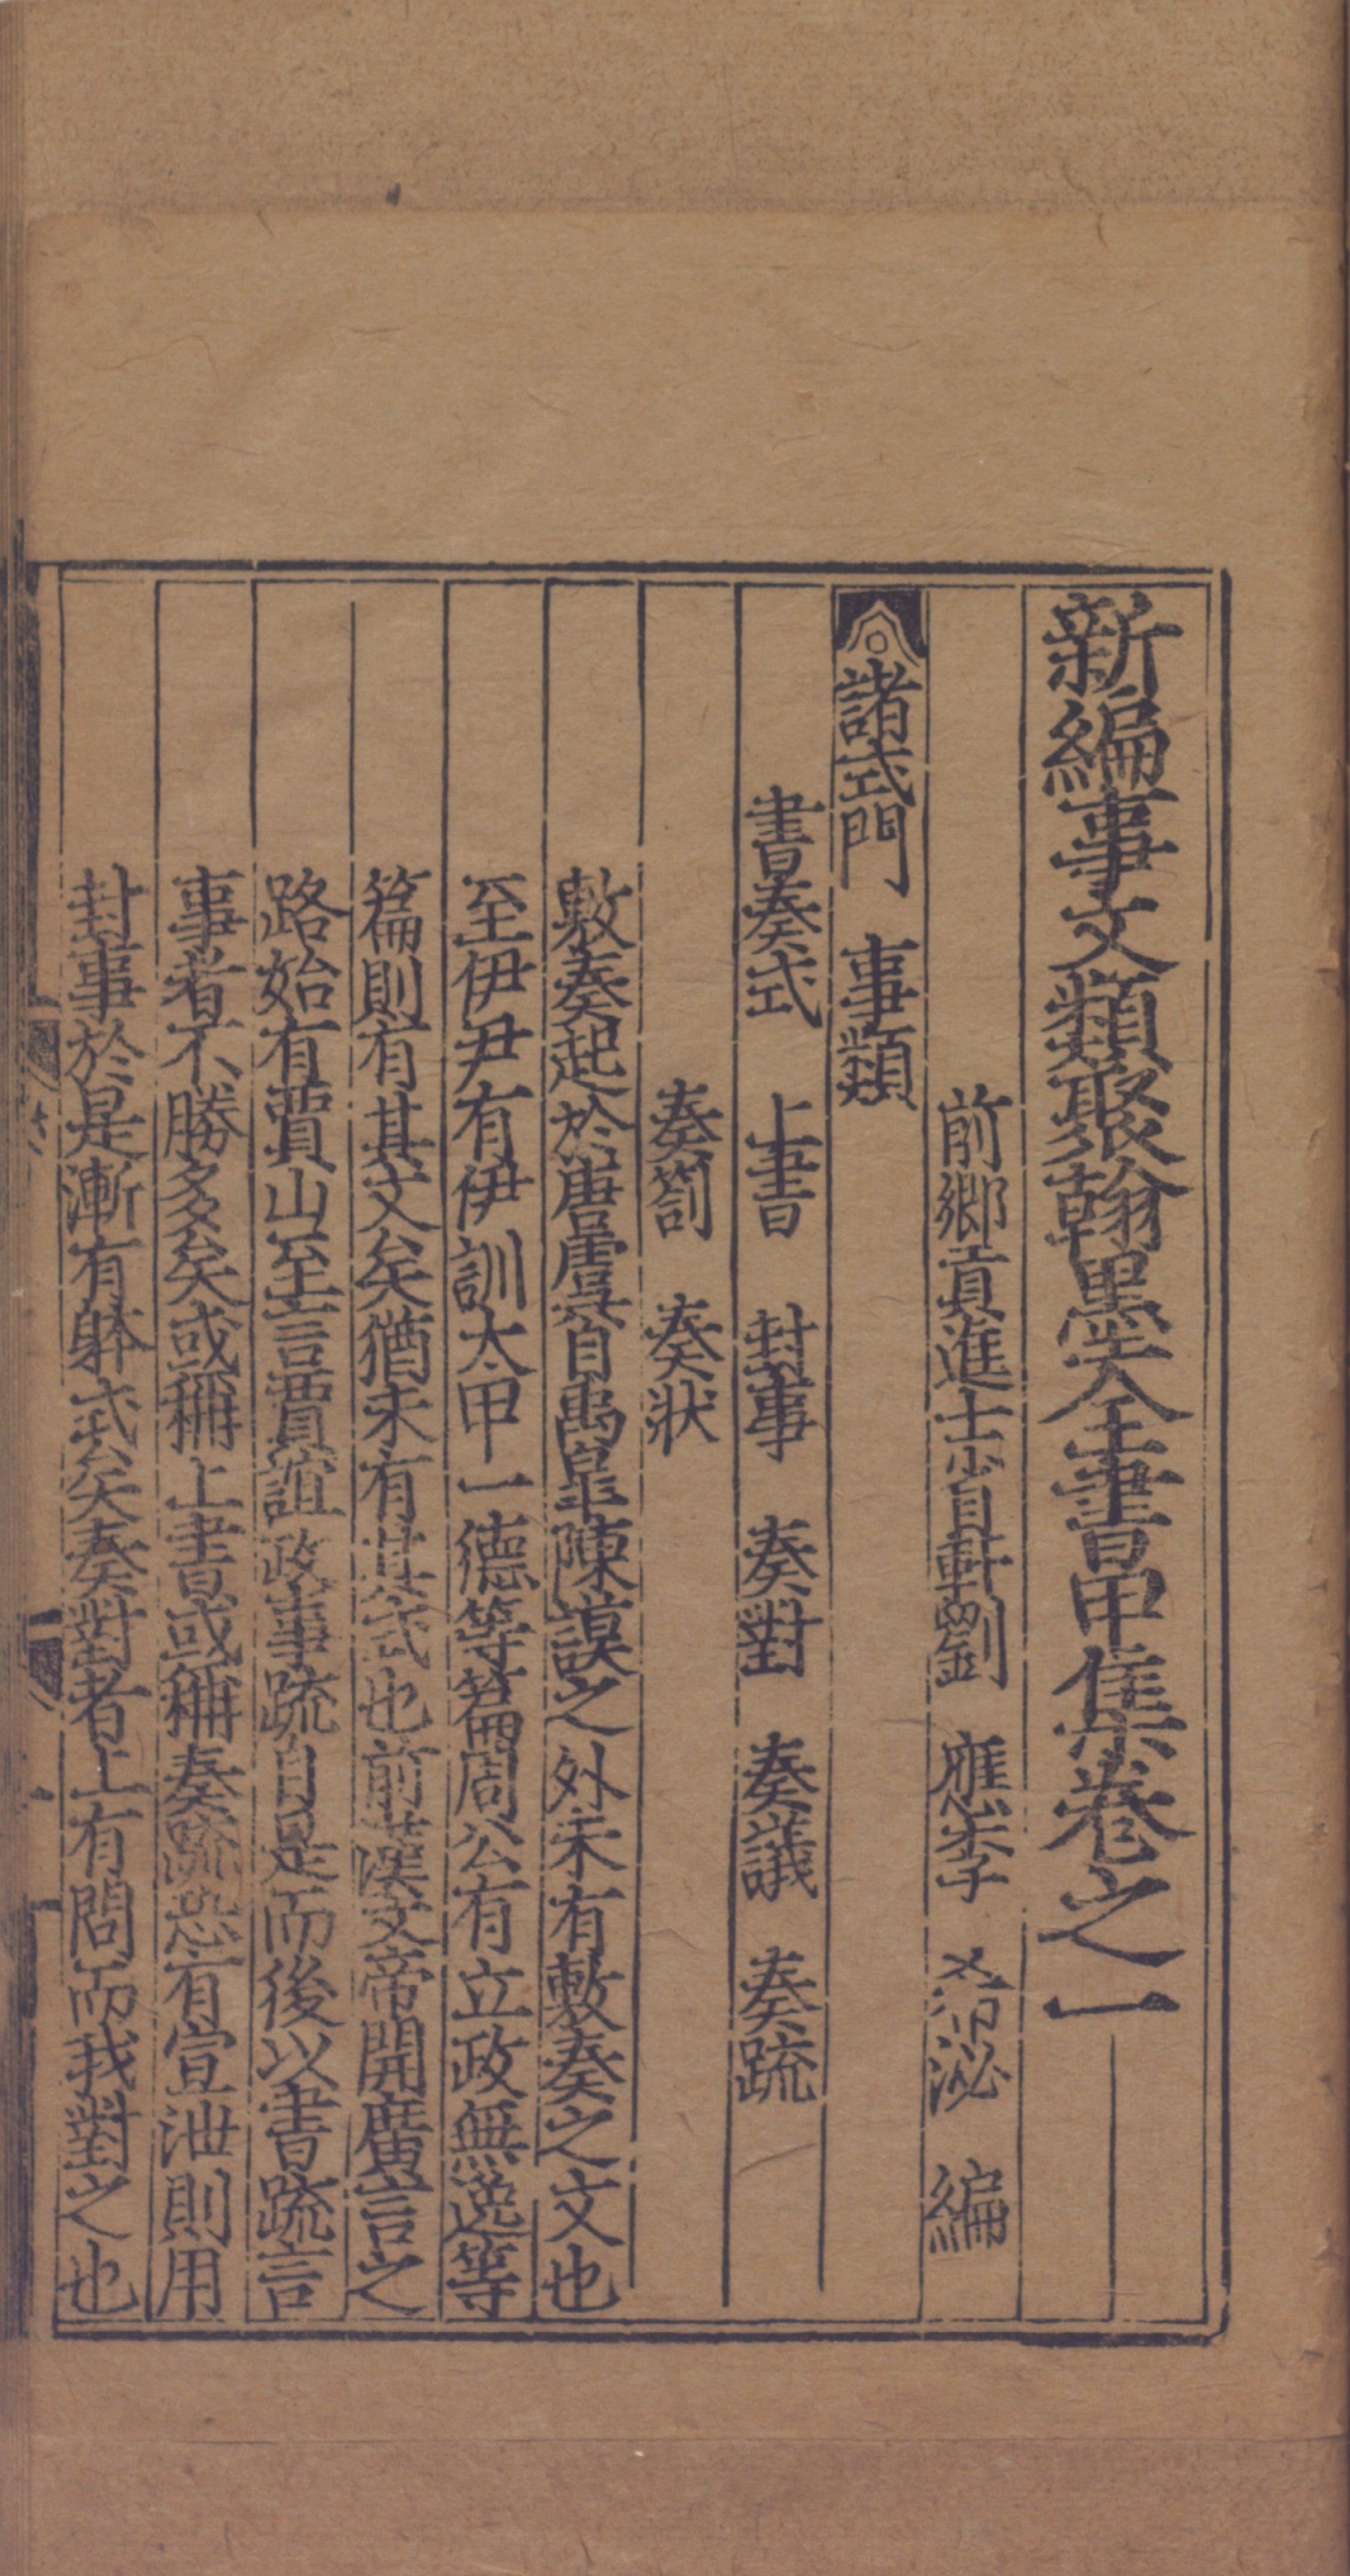 新編事文類聚翰墨大全書甲集卷之一
前鄉貢進士省軒劉 應李 希泌 編
諸式門 事類
書奏式 上書 封事 奏對 奏議 奏疏
奏劄 奏狀
敷奏起於唐虞自禹皐陳謨之外未有敷奏之文也
至伊尹有伊訓太甲一德等篇周公有立政無逸等
篇則有其文矣猶未有其式也前漢文帝開廣言之
路始有賈山至言賈誼政事疏自是而後以書疏言
事者不勝多矣或稱上書或稱奏疏恐有宣泄則用
封事於是漸有躰式矣奏對者上有問而我對之也